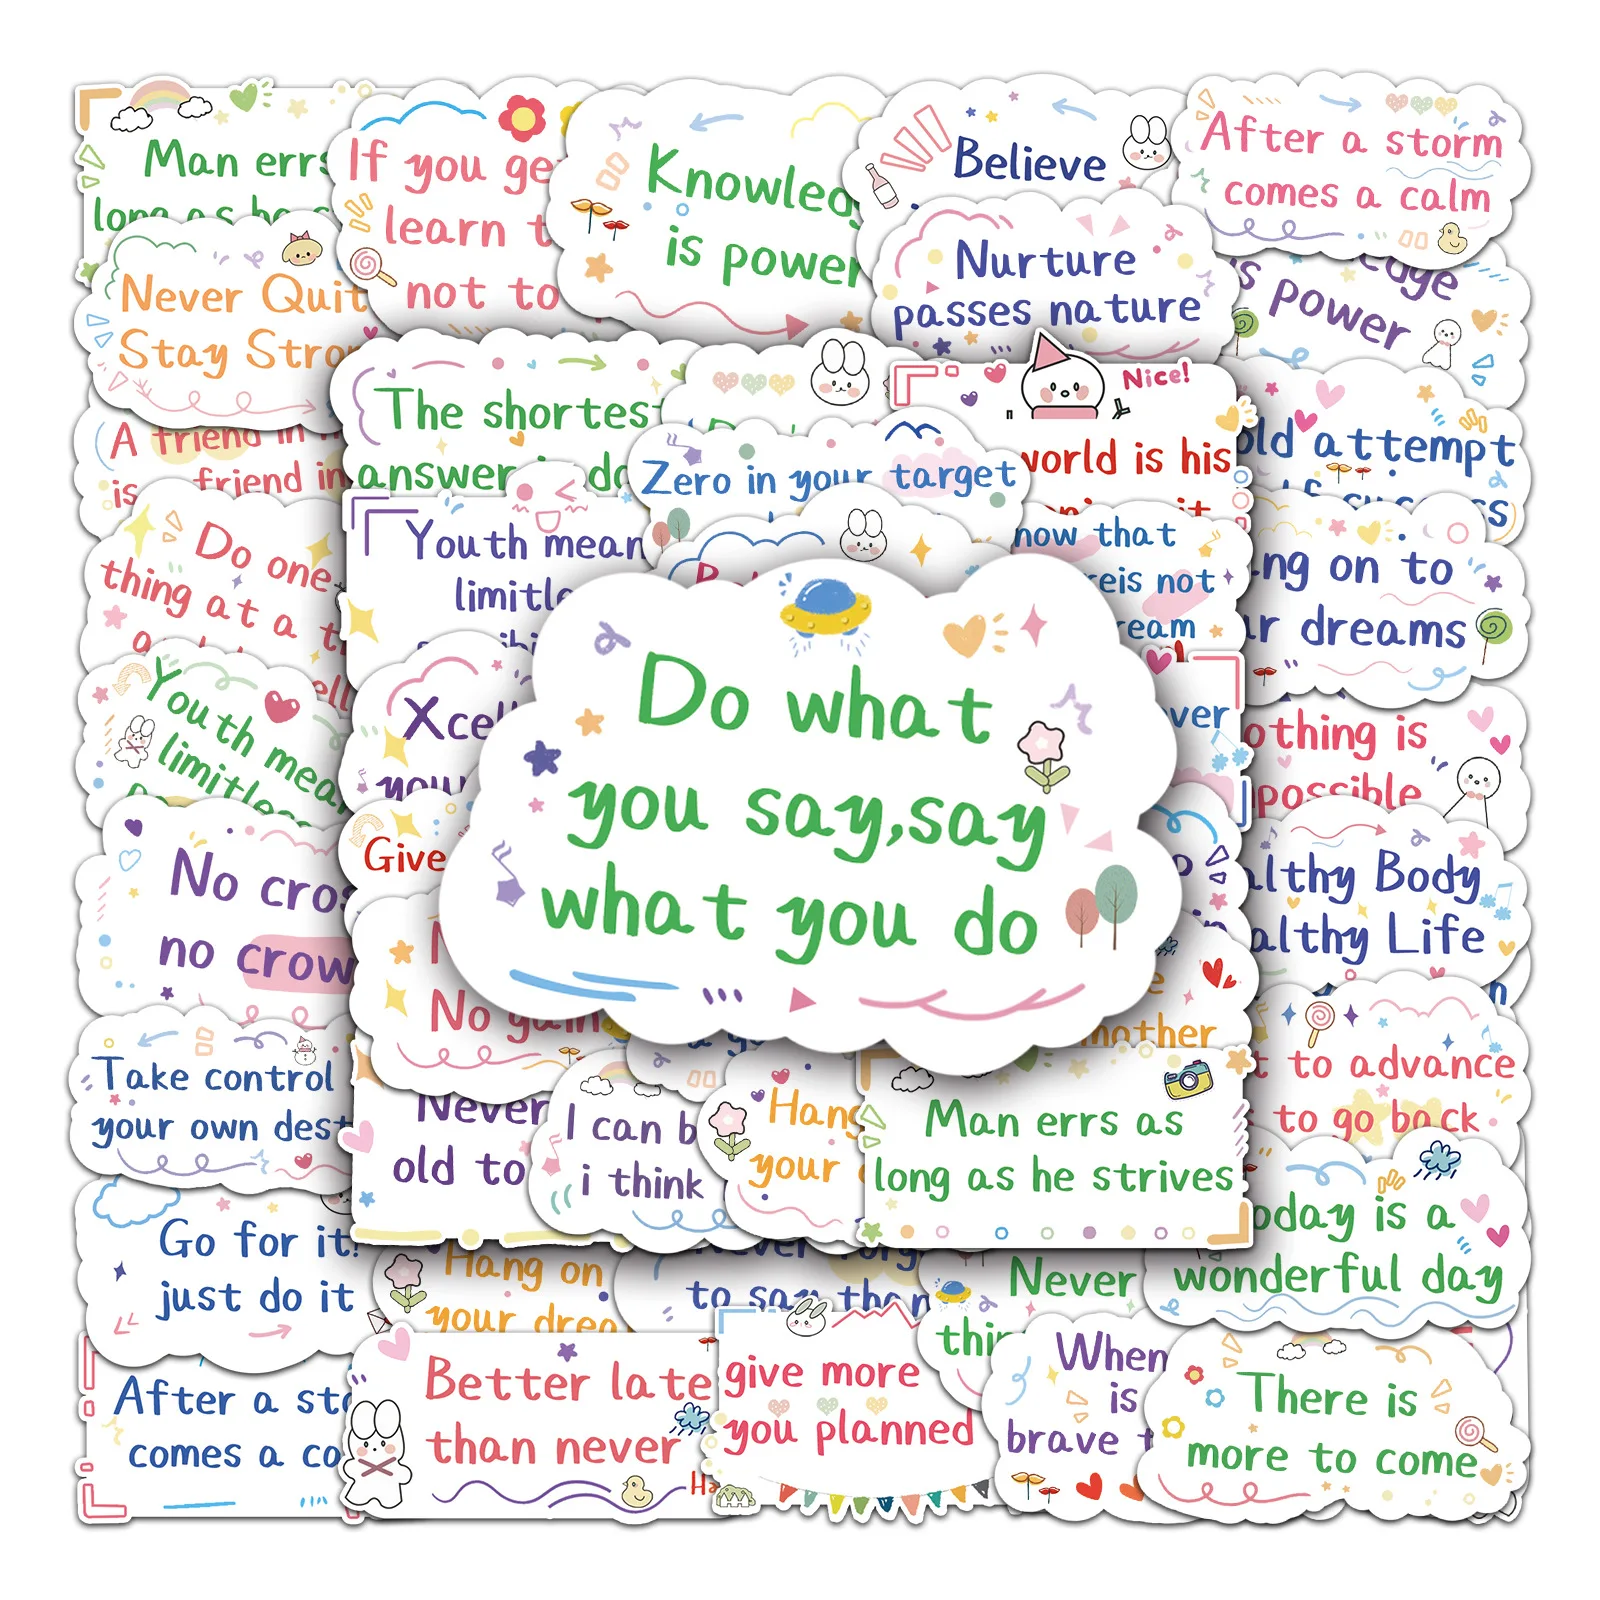 Man errs
long as he s
If you ge
learn t
not to
Knowledg
is power
Believe
After a storm
comes a calm
Never Quit
Stay Stro
Nurture
passes nature
edge
s power
A friend in
is friend in
The shortest
answer is do
Nice!
world is his
Zero in your target
old attempt
Do one
thing at a t
Youth mean
limitle
now that
reis not
ream
ng on to
r dreams
Do what
you say,say
what you do
Youth mea
limitles
Xcel
you
ver
othing is
possible
No cros
no crow
Give
No gain
althy Body
althy Life
Take control
your own dest
Never
old to
I can b
i think
Hang
your
mother
Man errs as
long as he strives
t to advance
to go back
Go for it!
just do it
Hang on
your drea
Never forg
to say then
Never
thin
oday is a
wonderful day
After a sto
comes a ca
Better late
than never
Ha
give more
you planned
When
is
brave t
There is
more to come